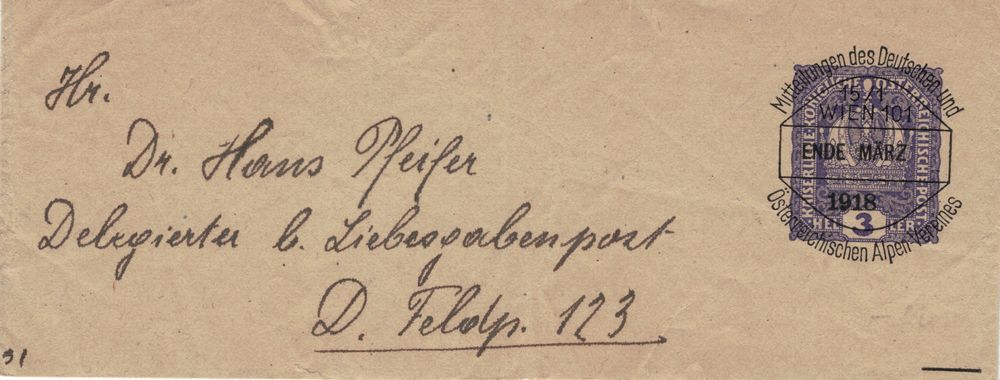 Hr.
Dr. Hans Pfeifer
Delegierter b. Liebesgabenpost
D. Feldp. 123
31
Mitteilungen des Deutschen und
15/1
WIEN 101
ENDE MÄRZ
1918
Österreichischen Alpen-Vereines
KAISERLICHEKÖNIGLICHE ÖSTERREICHISCHE POST
HELLER 3 HELLER